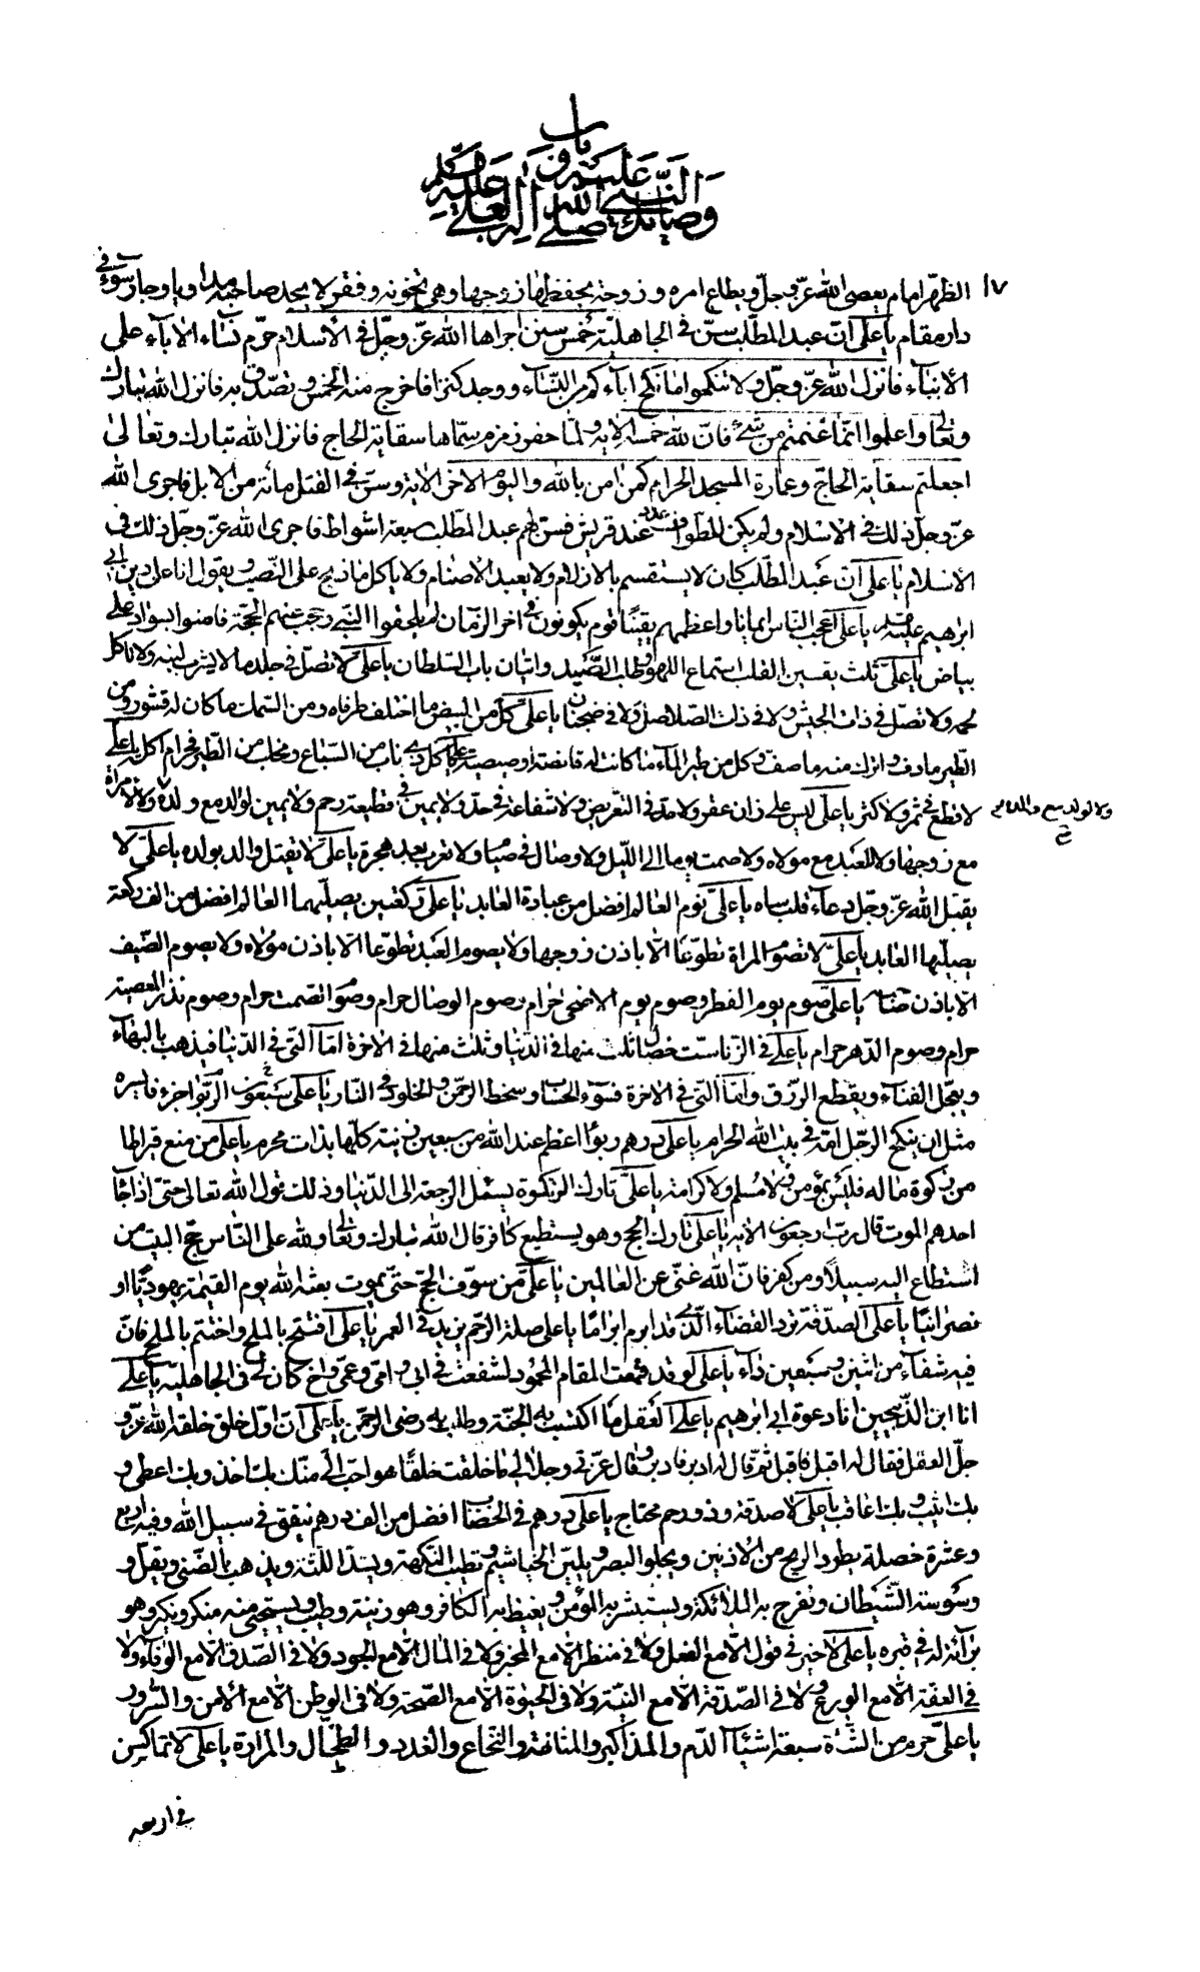 باب
وصايا النبي صلى الله عليه وآله لعلي عليه السلام
١٧
الظهر امام يعصى الله عزّ وجلّ ويطاع امره وزوجة يحفظها زوجها وهي تخونه وفقر لا يجد صاحبه مداويا وجار سوء في
دار مقام يا علي انّ عبد المطّلب سنّ في الجاهليّة خمس سنن اجراها الله عزّ وجلّ في الأسلام حرّم نساء الاباء على
الأبناء فانزل الله عزّ وجلّ ولا تنكحوا ما نكح اباؤكم من النّساء ووجد كنزا فاخرج منه الخمس وتصدّق به فانزل الله تبارك
وتعالى واعلموا انّما غنمتم من شئ فانّ لله خمسه الاية ولمّا حفر زمزم سمّاها سقاية الحاج فانزل الله تبارك وتعالى
اجعلتم سقاية الحاجّ وعمارة المسجد الحرام كمن امن بالله واليوم الاخر الاية وسنّ في القتل مائة من الابل فاجرى الله
عزّ وجلّ ذلك في الاسلام ولم يكن للطّواف عدد عند قريش فسنّ لهم عبد المطّلب سبعة اشواط فاجرى الله عزّ وجلّ ذلك في
الاسلام يا علي انّ عبد المطّلب كان لا يستقسم بالازلام ولا يعبد الأصنام ولا ياكل ما ذبح على النّصب ويقول انا على دين ابي
ابرهيم عليه السلام يا علي اعجب النّاس ايمانا واعظمهم يقينًا قوم يكونون في اخر الزّمان لم يلحقوا النّبي وحجب عنهم الحجّة فامنوا بسواد على
بياض يا علي ثلث يقسين القلب استماع اللهو وطلب الصّيد واتيان باب السّلطان يا علي لا تصلّ في جلد ما لا يشرب لبنه ولا ياكل
لحمه ولا تصلّ في ذات الجيش ولا في ذات الصّلاصل ولا في ضجنان يا علي كل من البيض ما اختلف طرفاه ومن السّمك ما كان له قشور ومن
الطّير ما دف واترك منه ما صف وكل من طير الماء ما كانت له قانصة او صيصية يا علي كل ذي ناب من السّباع ومخلب من الطّير فحرام اكله يا علي
لا قطع في ثمر ولا كثر يا علي ليس على زان عقر ولا حدّ في التّعريض ولا شفاعة في حدّ ولا يمين في قطيعة رحم ولا يمين لولد مع والده ولا لامراة
ولا لولد مع والده
مع زوجها ولا للعبد مع مولاه ولا صمت يوما الى اللّيل ولا وصال في صيام ولا تعرب بعد هجرة يا علي لا يقتل والد بولده يا عليّ لا
يقبل الله عزّ وجلّ دعاء قلب ساه يا عليّ نوم العالم افضل من عبادة العابد يا عليّ ركعتين يصلّيهما العالم افضل من الف ركعة
يصلّيها العابد يا عليّ لا تصوم المراة تطوّعا الّا باذن زوجها ولا يصوم العبد تطوّعا الّا باذن مولاه ولا يصوم الضّيف
الّا باذن صاحبه يا عليّ صوم يوم الفطر وصوم يوم الاضحى حرام وصوم الوصال حرام وصوم الصّمت حرام وصوم نذر المعصية
حرام وصوم الدّهر حرام يا علي في الزّنا ستّ خصال ثلث منها في الدّنيا وثلث منها في الاخرة امّا الّتي في الدّنيا فيذهب بالبهاء
ويعجّل الفناء ويقطع الرّزق وامّا الّتي في الاخرة فسوء الحساب وسخط الرحمن والخلود في النّار يا علي الرّبوا سبعون جزء فايسره
مثل ان ينكح الرّجل امّه في بيت الله الحرام يا علي درهم ربوًا اعظم عند الله من سبعين زنية كلّها بذات محرم يا علي من منع قيراطا
من زكوة ماله فليس بمؤمن ولا مسلم ولا كرامة يا عليّ تارك الزّكوة يسئل الرجعة الى الدّنيا وذلك قول الله تعالى حتى اذا جاء
احدهم الموت قال ربّ ارجعون الاية يا علي تارك الحج وهو يستطيع كافر قال الله تبارك وتعالى ولله على النّاس حجّ البيت من
استطاع اليه سبيلًا ومن كفر فانّ الله غنيّ عن العالمين يا عليّ من سوّف الحجّ حتّى يموت بعثه الله يوم القيمة يهوديًّا او
نصرانيًّا يا علي الصّدقة تردّ القضاء الّذي قد ابرم ابرامًا يا علي صلة الرّحم يزيد في العمر يا علي افتتح بالملح واختتم بالملح فانّ
فيه شفاء من اثنين وسبعين داء يا علي لو قد قمت المقام المحمود لشفعت في ابي وامّي وعمّي واخ كان لي في الجاهليّة يا علي
انا ابن الذّبيحين انا دعوة ابي ابرهيم يا علي العقل ما اكتسب به الجنّة وطلب به رضى الرحمن يا علي انّ اوّل خلق خلقه الله عزّ و
جلّ العقل فقال له اقبل فاقبل ثمّ قال له ادبر فادبر وقال عزّتي وجلالي ما خلقت خلقًا هو احبّ اليّ منك بك اخذ وبك اعطي و
بك اثيب وبك اعاقب يا علي لا صدقة وذو رحم محتاج يا علي درهم في الخضاب افضل من الف درهم ينفق في سبيل الله وفيه اربع
وعشرة خصلة يطرد الريح من الأذنين ويجلوا البصر ويليّن الخياشيم ويطيب النّكهة ويشدّ اللّثة ويذهب بالضّنى ويقلّ و
وسوسة الشّيطان وتفرح به الملائكة ويستبشر به المؤمن ويغيظ به الكافر وهو زينة وطيب ويستحيي منه منكر ونكير وهو
براءة له في قبره يا علي لا خير في قول الّا مع الفعل ولا في منظر الّا مع المخبر ولا في المال الّا مع الجود ولا في الصّدق الّا مع الوفاء ولا
في الفقه الّا مع الورع ولا في الصّدقة الّا مع النيّة ولا في الحيوة الّا مع الصّحة ولا في الوطن الّا مع الأمن والسّرور
يا عليّ حرم من الشّاة سبعة اشياء الدّم والمذاكير والمثانة والنّخاع والغدد والطحال والمرارة يا علي لا تماكس
في اربعة